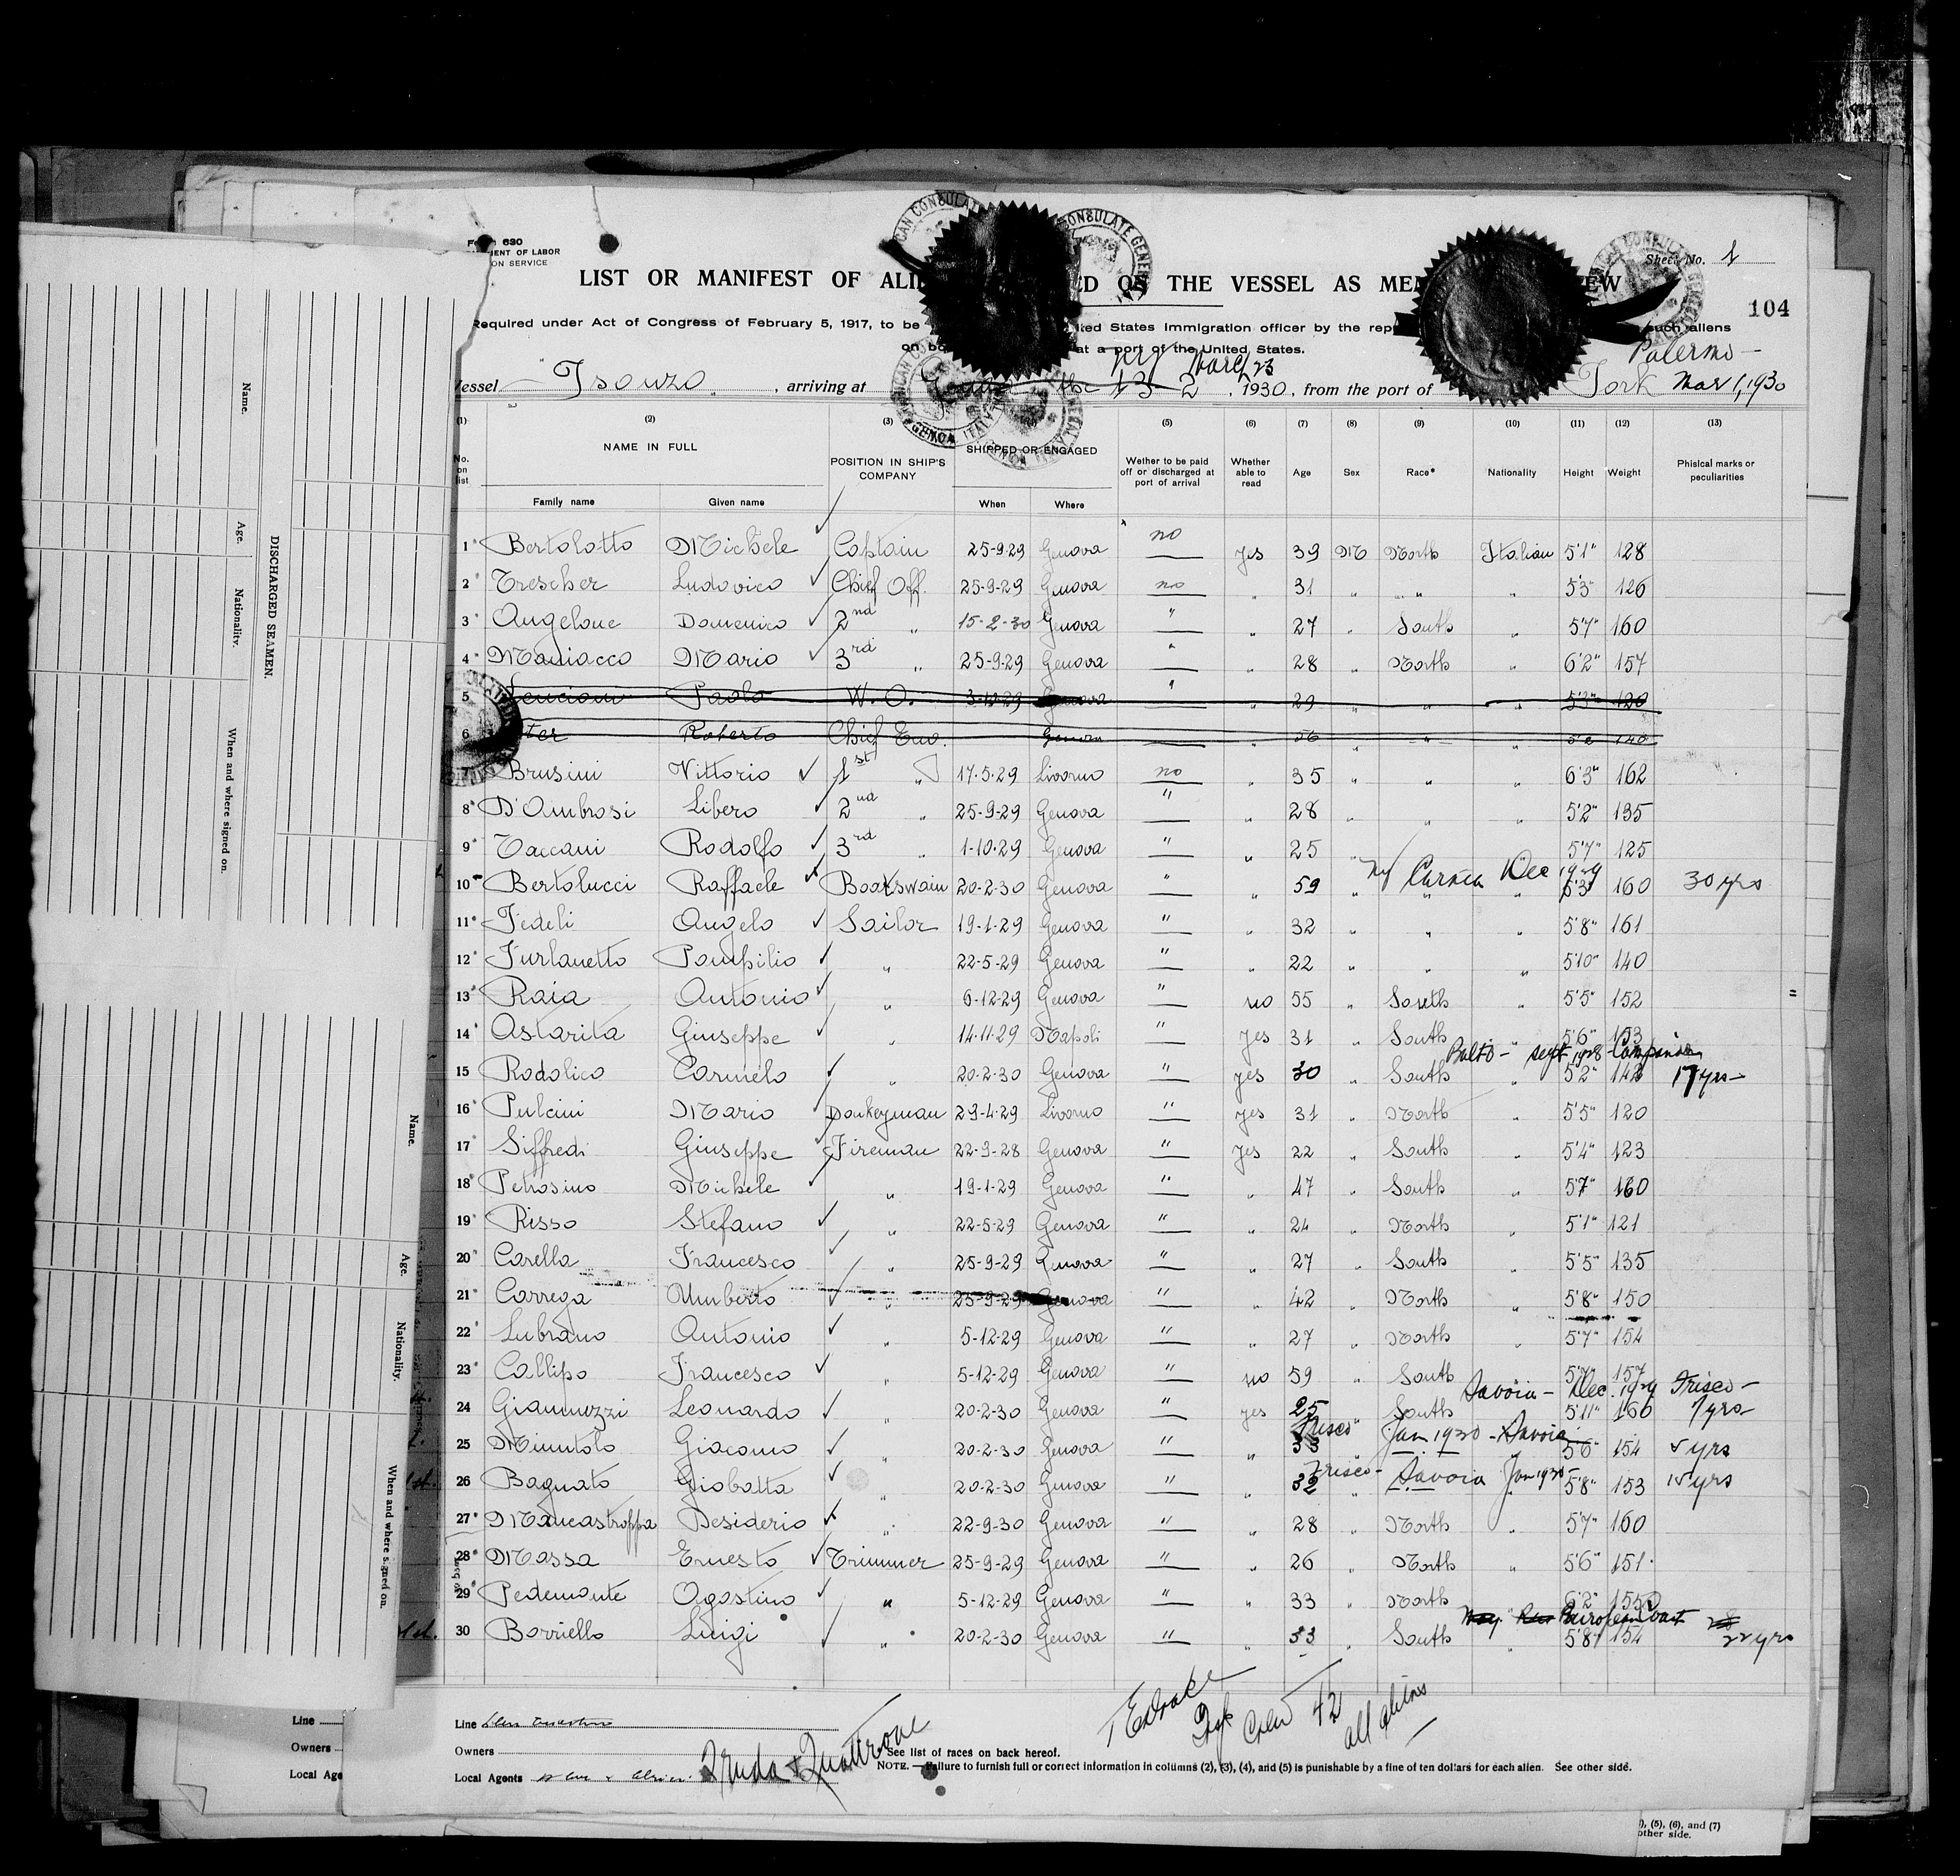 630
LABOR
ON SERVICE
Sheet No. 1
LIST OR MANIFEST OF ALI ED ON THE VESSEL AS MEM EW
104
Required under Act of Congress of February 5, 1917, to be ited States Immigration officer by the rep such aliens
on bo at a port of the United States.
Palermo —
Vessel Isonzo, arriving at the 13-2, 1930, from the port of York Mar 1, 1930
March 23
(1) (2) (3) (5) (6) (7) (8) (9) (10) (11) (12) (13)
No. on list NAME IN FULL POSITION IN SHIP'S COMPANY SHIPPED OR ENGAGED Wether to be paid off or discharged at port of arrival Whether able to read Age Sex Race* Nationality Height Weight Phisical marks or peculiarities
Family name Given name When Where
1 Bertolotto Michele Captain 25-9-29 Genova no yes 39 M North Italian 5'1" 128
2 Trescher Ludovico Chief Off. 25-9-29 Genova no " 31 " " " 5'3" 126
3 Angelone Domenico 2nd " 15-2-30 Genova " " 27 " South " 5'7" 160
4 Maniacco Mario 3rd " 25-9-29 Genova " " 28 " North " 6'2" 157
5 Paolo W.O. 3-12-29 Genova " " 29 " " " 5'3" 120
6 Roberto Chief Eng. Genova " 56 " " "
7 Brusini Vittorio 1st " 17-5-29 Livorno no " 35 " " " 6'3" 162
8 D'Ambrosi Libero 2nd " 25-9-29 Genova " " 28 " " " 5'2" 135
9 Taccani Rodolfo 3rd " 1-10-29 Genova " " 25 " 5'7" 125
NY Carnia Dec 1929
10 Bertolucci Raffaele Boatswain 20-2-30 Genova " " 59 " " " 5'3" 160 30 yrs
11 Fedeli Angelo Sailor 19-1-29 Genova " " 32 " " " 5'8" 161
12 Furlanetto Pompilio " 22-5-29 Genova " " 22 " " " 5'10" 140
13 Raia Antonio " 6-12-29 Genova " no 55 " South " 5'5" 152
14 Astarita Giuseppe " 14-11-29 Napoli " yes 31 " South " 5'6" 153
Balto - Sept 1928
15 Rodolico Carmelo " 20-2-30 Genova " yes 30 " South " 5'2" 142 17 yrs
16 Pulcini Mario Donkeyman 29-4-29 Livorno " yes 31 " North " 5'5" 120
17 Siffredi Giuseppe Fireman 22-9-28 Genova " yes 22 " South " 5'4" 123
18 Petrosino Michele " 19-1-29 Genova " " 47 " South " 5'7" 160
19 Risso Stefano " 22-5-29 Genova " " 24 " North " 5'1" 121
20 Carella Francesco " 25-9-29 Genova " " 27 " South " 5'5" 135
21 Carrega Umberto " 25-9-29 Genova " " 42 " North " 5'8" 150
22 Lubrano Antonio " 5-12-29 Genova " " 27 " North " 5'7" 154
23 Callipo Francesco " 5-12-29 Genova " no 59 " South " 5'7" 157
Savoia - Dec. 1929 Frisco -
24 Giannuzzi Leonardo " 20-2-30 Genova " yes 25 " South " 5'11" 160 7 yrs
Frisco Jan 1930 - Savoia
25 Minutolo Giacomo " 20-2-30 Genova " " 33 " " " 5'6" 154 5 yrs
Frisco - Savoia Jan 1930
26 Bagnato Giobatta " 20-2-30 Genova " " 32 " " " 5'8" 153 15 yrs
27 Mancastroppa Desiderio " 22-9-30 Genova " " 28 " North " 5'7" 160
28 Massa Ernesto Trimmer 25-9-29 Genova " " 26 " North " 5'6" 151
29 Pedemonte Agostino " 5-12-29 Genova " " 33 " North " 6'2" 155
30 Borriello Luigi " 20-2-30 Genova " " 33 " South " 5'8" 154 22 yrs
Crew 42
all aliens
Line
Owners
Local Agents
See list of races on back hereof.
NOTE. — Failure to furnish full or correct information in columns (2), (3), (4), and (5) is punishable by a fine of ten dollars for each alien. See other side.
Line
Owners
Local Age
), (5), (6), and (7)
other side.
DISCHARGED SEAMEN.
Name. Age. Nationality. When and where signed on.
Name. Age. Nationality. When and where signed on.